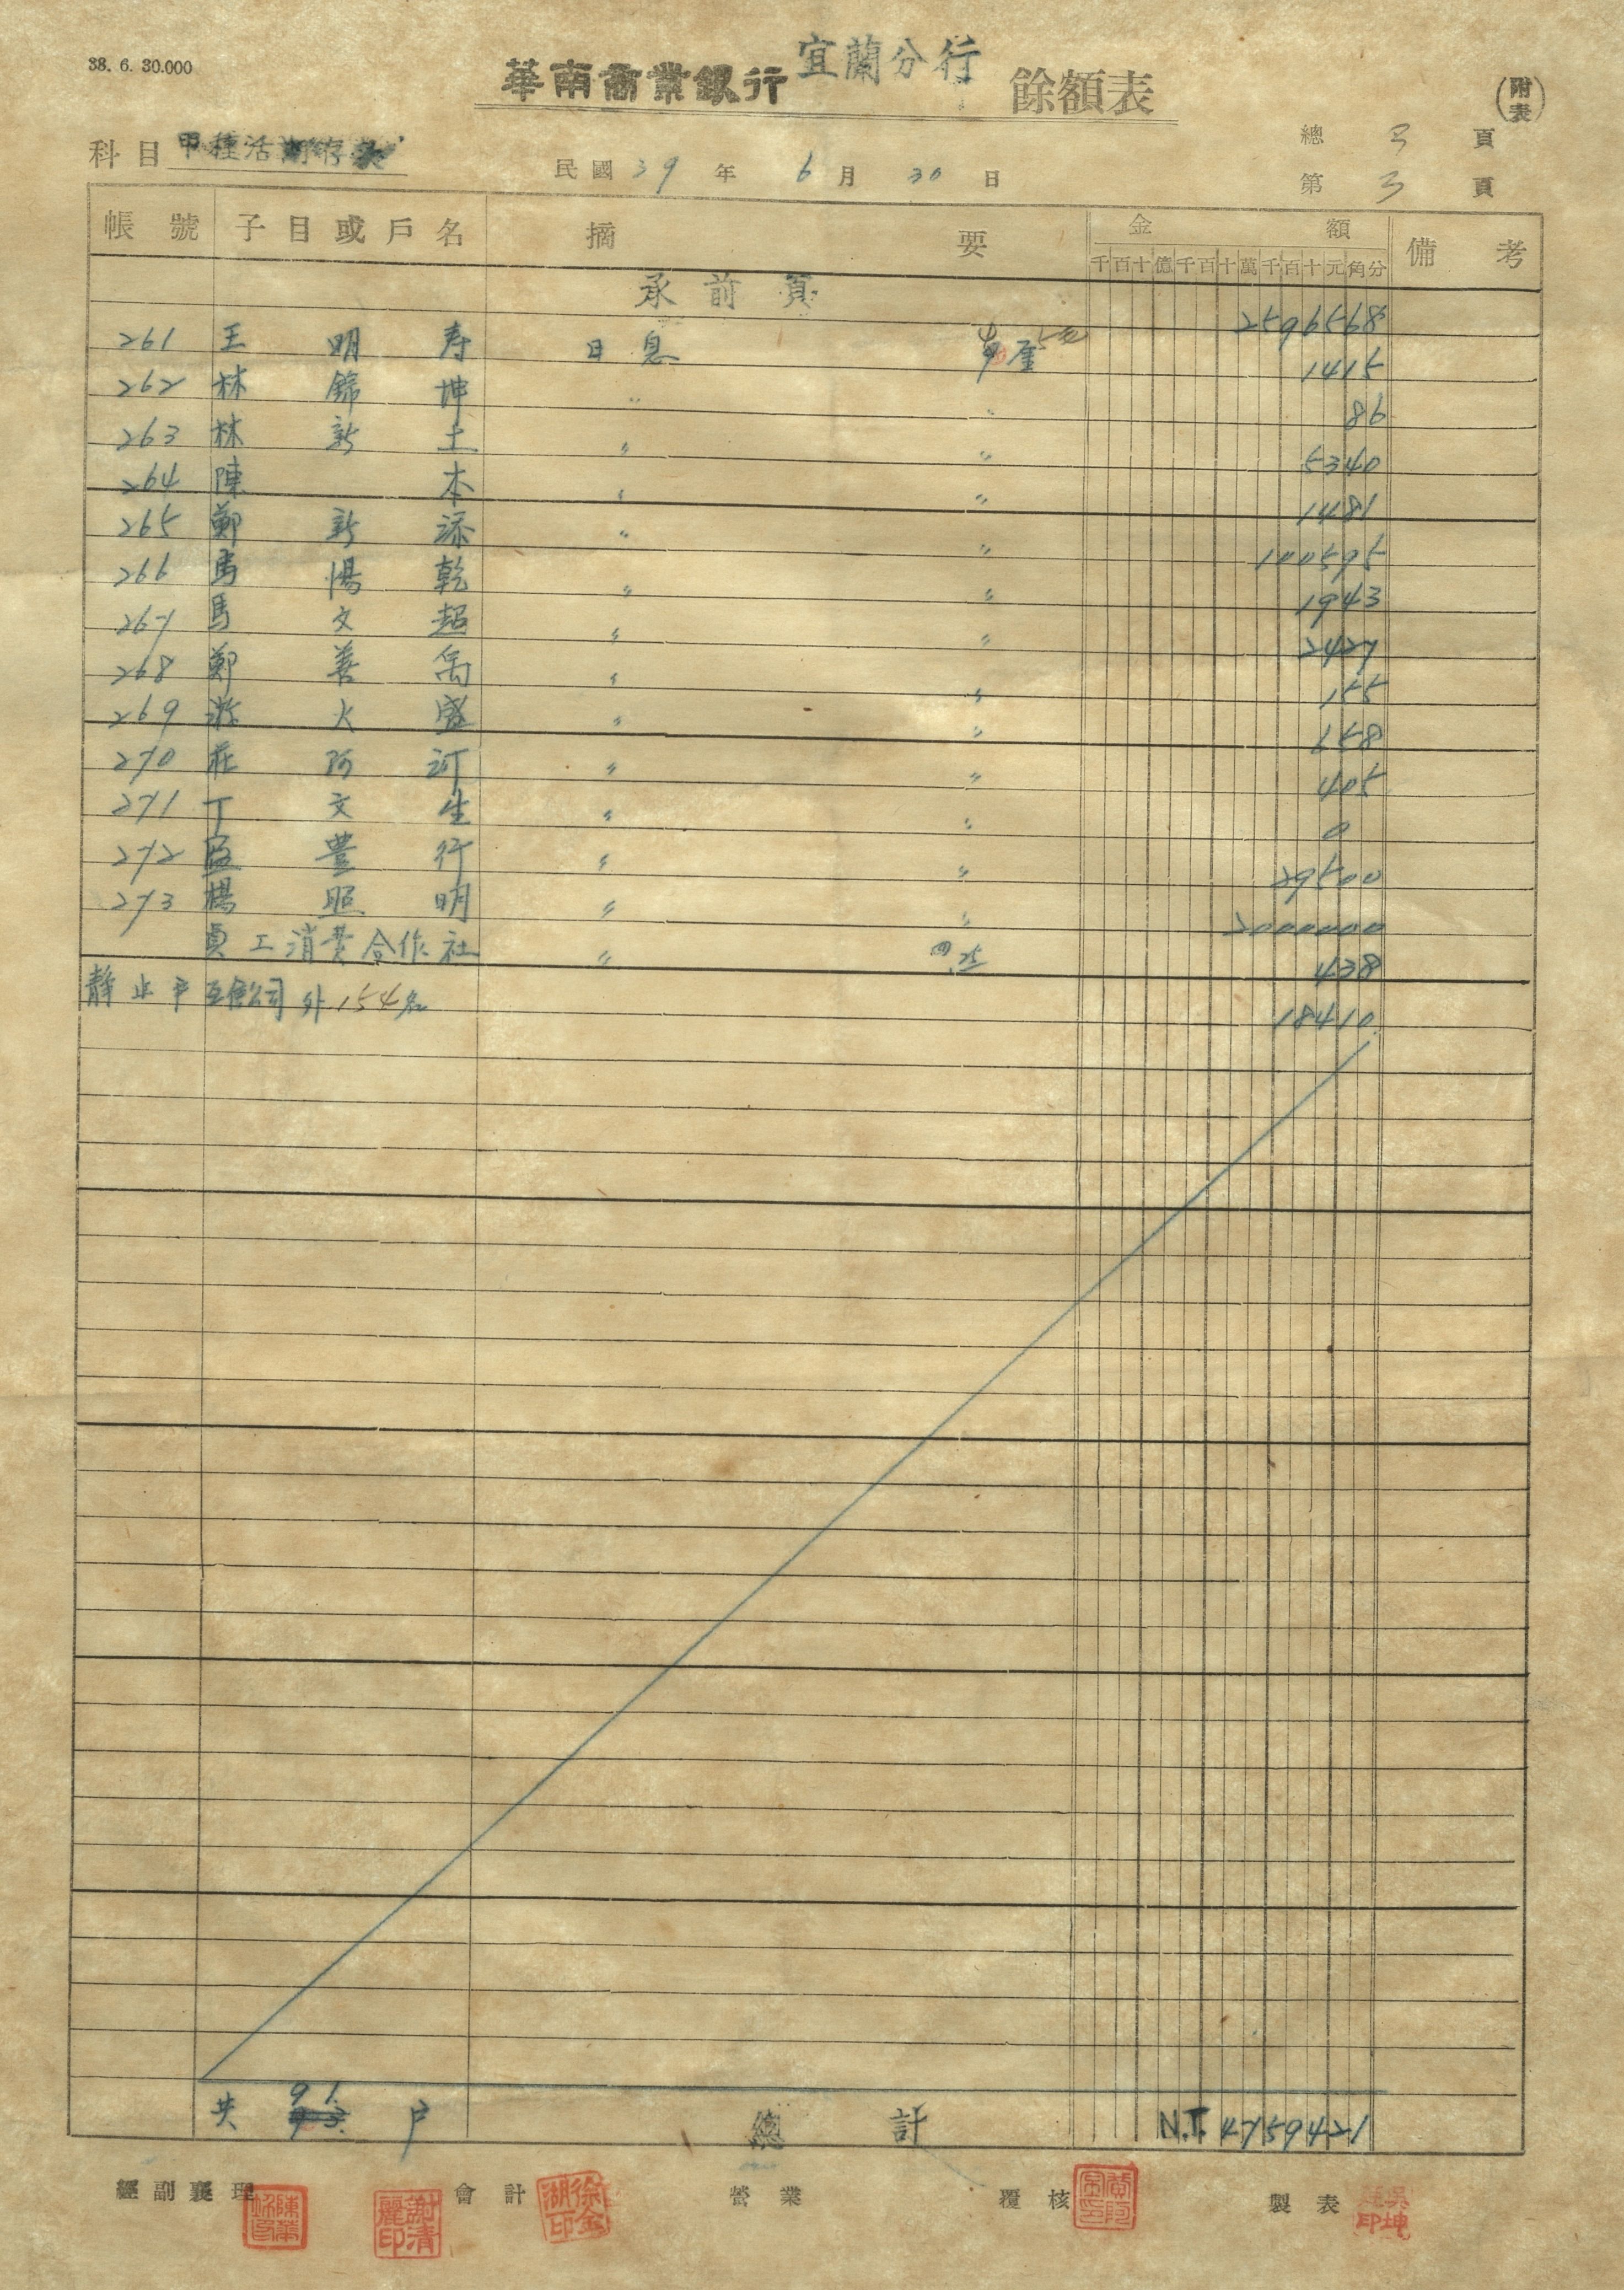 38. 6. 30.000
華南商業銀行 宜蘭分行 餘額表
(附表)
科目 甲種活期存款
民國 39 年 6 月 30 日
總 3 頁
第 3 頁
帳號 子目或戶名 摘要 金額 備考
千百十億千百十萬千百十元角分
承前頁 2596568
261 王明寿 日息 1415
262 林錦坤 〃 〃 86
263 林新土 〃 〃 5340
264 陳本 〃 〃 1481
265 鄭新添 〃 〃 100595
266 馬惕乾 〃 〃 1943
267 馬文超 〃 〃 2427
268 鄭善禹 〃 〃 155
269 游火盛 〃 〃 658
270 莊阿訂 〃 〃 405
271 丁文生 〃 〃 0
272 豊行 〃 〃 29500
273 楊照明 〃 〃 2000000
員工消費合作社 〃 438
靜止戶 公司外154名 18410
共 91 戶 總計 N.T. 4759421
經副襄理 會計 營業 覆核 製表
謝清麗印
徐金湖印